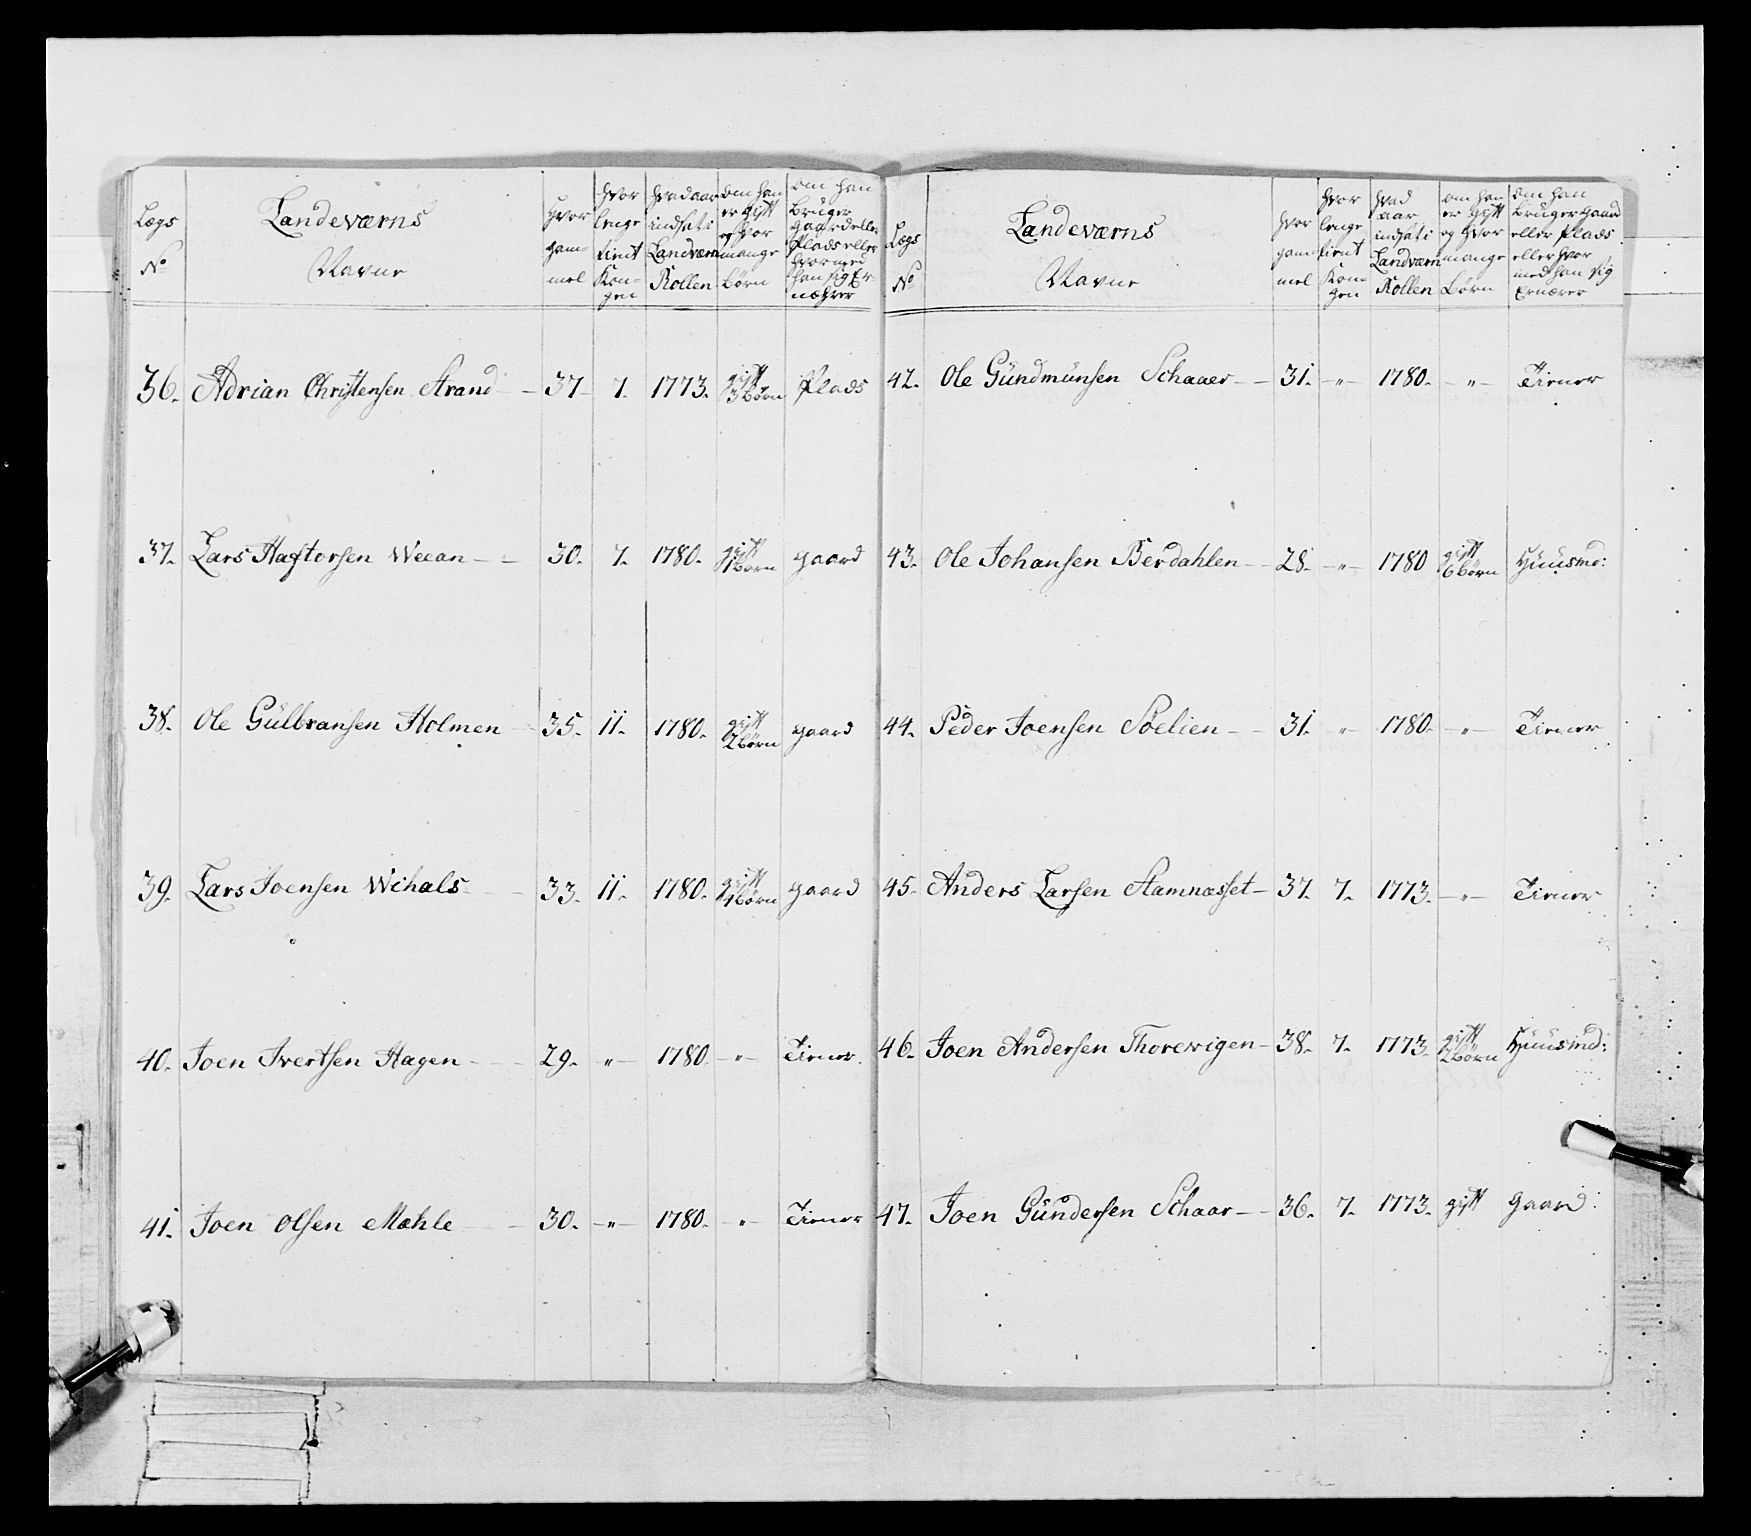 Lægs
No
Landeværns
Navne
hvor
gam-
mel
hvor
lenge
tient
Kon-
gen
hvad aar
indsat i
Landværn
Rollen
om han
er gift
og hvor
mange
Børn
om han
bruger
gaard eller
Plads eller
hvormed
han sig Er-
nærer
36. Adrian Christensen Strand - 37 - 7. 1773. gift 3 Børn Plads
37. Lars Haftorsen Weean - - 30. 7. 1780. gift 1 Børn gaard
38. Ole Gülbransen Holmen - 35. 11. 1780. gift 2 Børn gaard
39. Lars Joensen Wihals - 33. 11. 1780. gift 1 Børn gaard
40. Joen Ivertsen Hagen - 29. - " - 1780 - " - Tiener.
41. Joen Olsen Mæhle - 30. - " - 1780. - " - Tiener
Lægs
No
Landeværns
Navne
hvor
gam-
mel
hvor
lenge
tient
Kon-
gen
hvad
aar
indsat i
Landværn
Rollen
om han
er gift
og hvor
mange
Børn
om han
bruger gaard
eller Plads
eller hvor
med han sig
Ernærer
42. Ole Gündmünsen Schaaer - - 31. - " - 1780. - " - Tiener
43. Ole Johansen Berdahlen - 28. - " - 1780 gift 6 Børn Huusmd:
44. Peder Joensen Söelien - - 31. " 1780. - " - Tiener
45. Anders Larsen Stamnæsset - 37. 7. 1773. - " - Tiener
46. Joen Andersen Thorewigen - 38. 7. 1773. gift 2 Børn Huusmd:
47. Joen Gündersen Schaar - - 36. 7. 1773. gift gaard